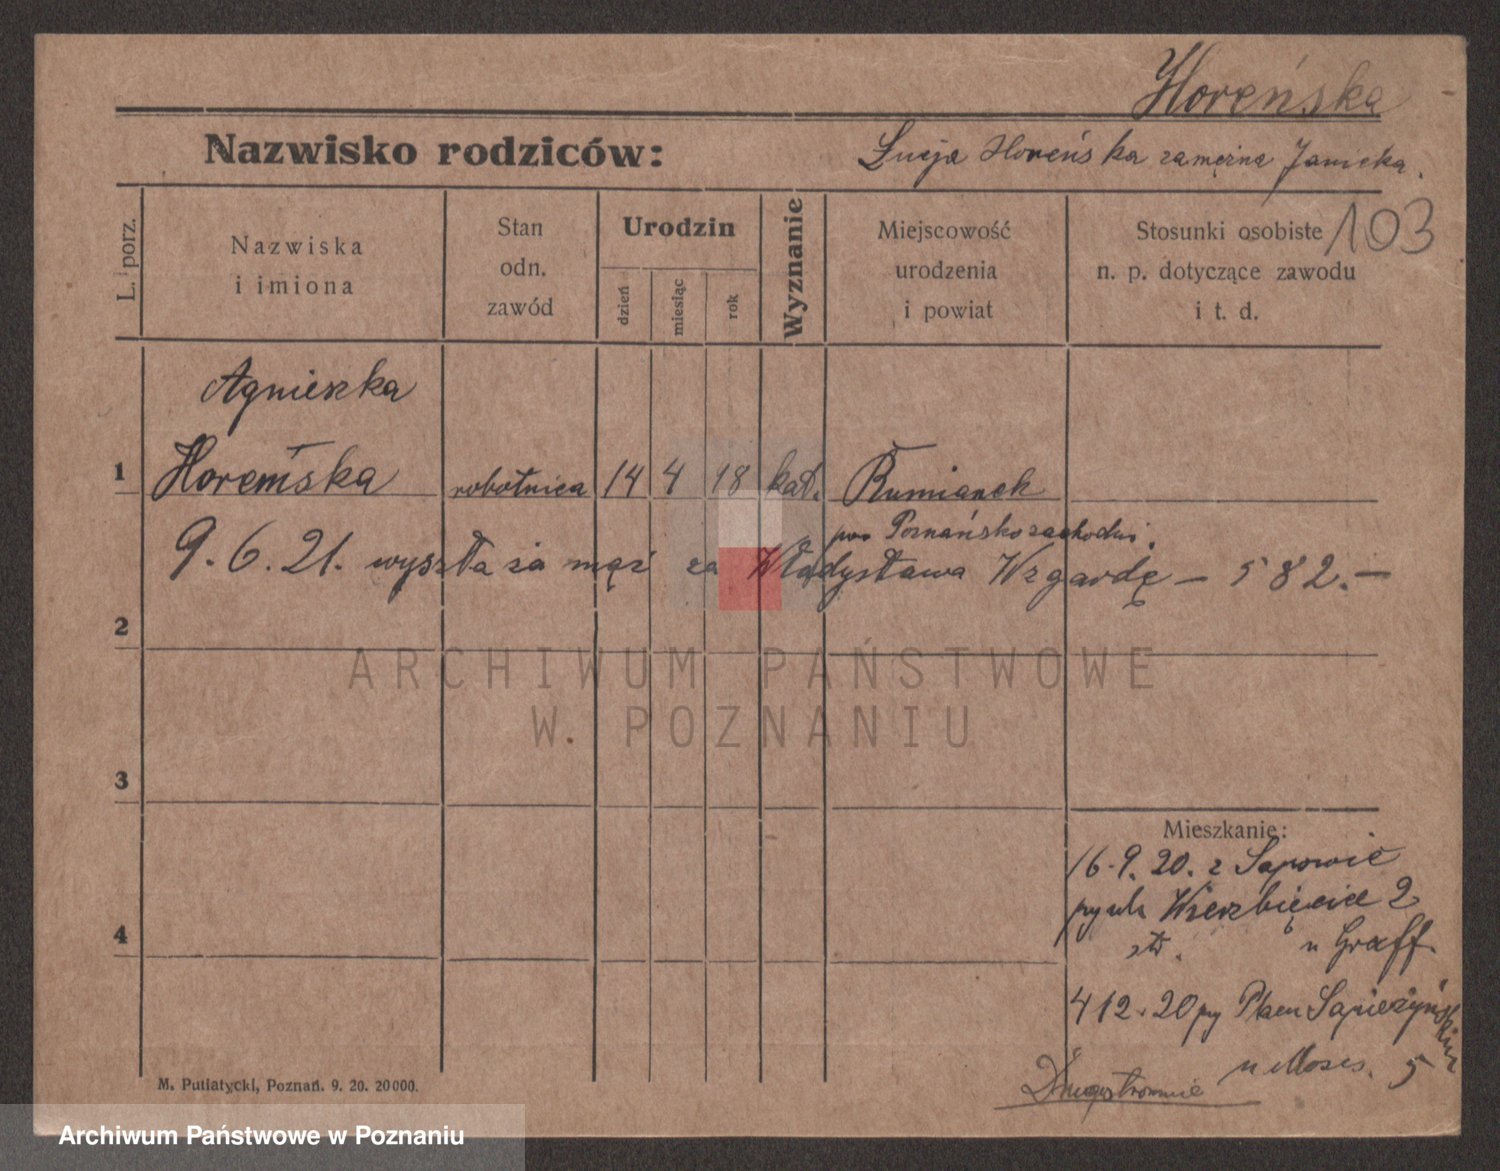 Horeńska
Nazwisko rodziców:
Łucja Horeńska zamężna Janicka.
L. porz.
Nazwiska
i imiona
Stan
odn.
zawód
Urodzin
dzień
miesiąc
rok
Wyznanie
Miejscowość
urodzenia
i powiat
Stosunki osobiste
n. p. dotyczące zawodu
i t. d.
103
Agnieszka
1 Horeńska robotnica 14 4 18 kat. Rumianek
pow Poznańsko zachodni.
9.6.21. wyszła za mąż za Władysława Wzgardę – 582. –
2
ARCHIWUM PAŃSTWOWE
W POZNANIU
3
Mieszkanie:
16.9.20. z Sapowic
Wierzbięcice 2
4
u Graff.
4 12.20 Placu Sapieżyńskim
u Moses. 5
M. Putiatycki, Poznań. 9. 20. 20000.
Archiwum Państwowe w Poznaniu